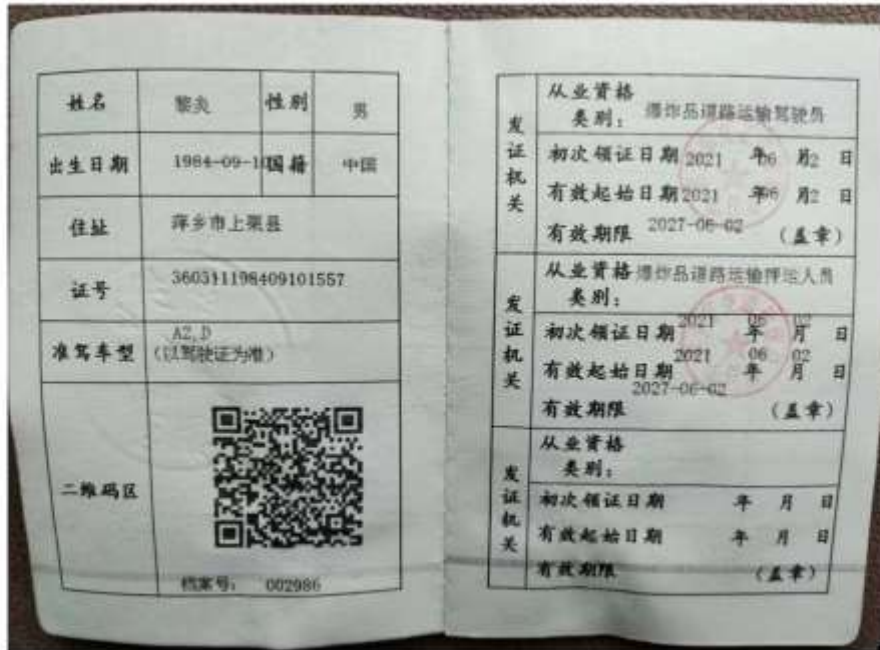 姓名 黎炎 性别 男
出生日期 1984-09-10 国籍 中国
住址 萍乡市上栗县
证号 360311198409101557
准驾车型 A2,D
(以驾驶证为准)
二维码区
档案号: 002986
发证机关
从业资格
类别: 爆炸品道路运输驾驶员
初次领证日期 2021 年 06 月 2 日
有效起始日期 2021 年 06 月 2 日
有效期限 2027-06-02 (盖章)
发证机关
从业资格 爆炸品道路运输押运人员
类别:
初次领证日期 2021 年 06 月 02 日
有效起始日期 2021 年 06 月 02 日
2027-06-02
有效期限 (盖章)
发证机关
从业资格
类别:
初次领证日期 年 月 日
有效起始日期 年 月 日
有效期限 (盖章)